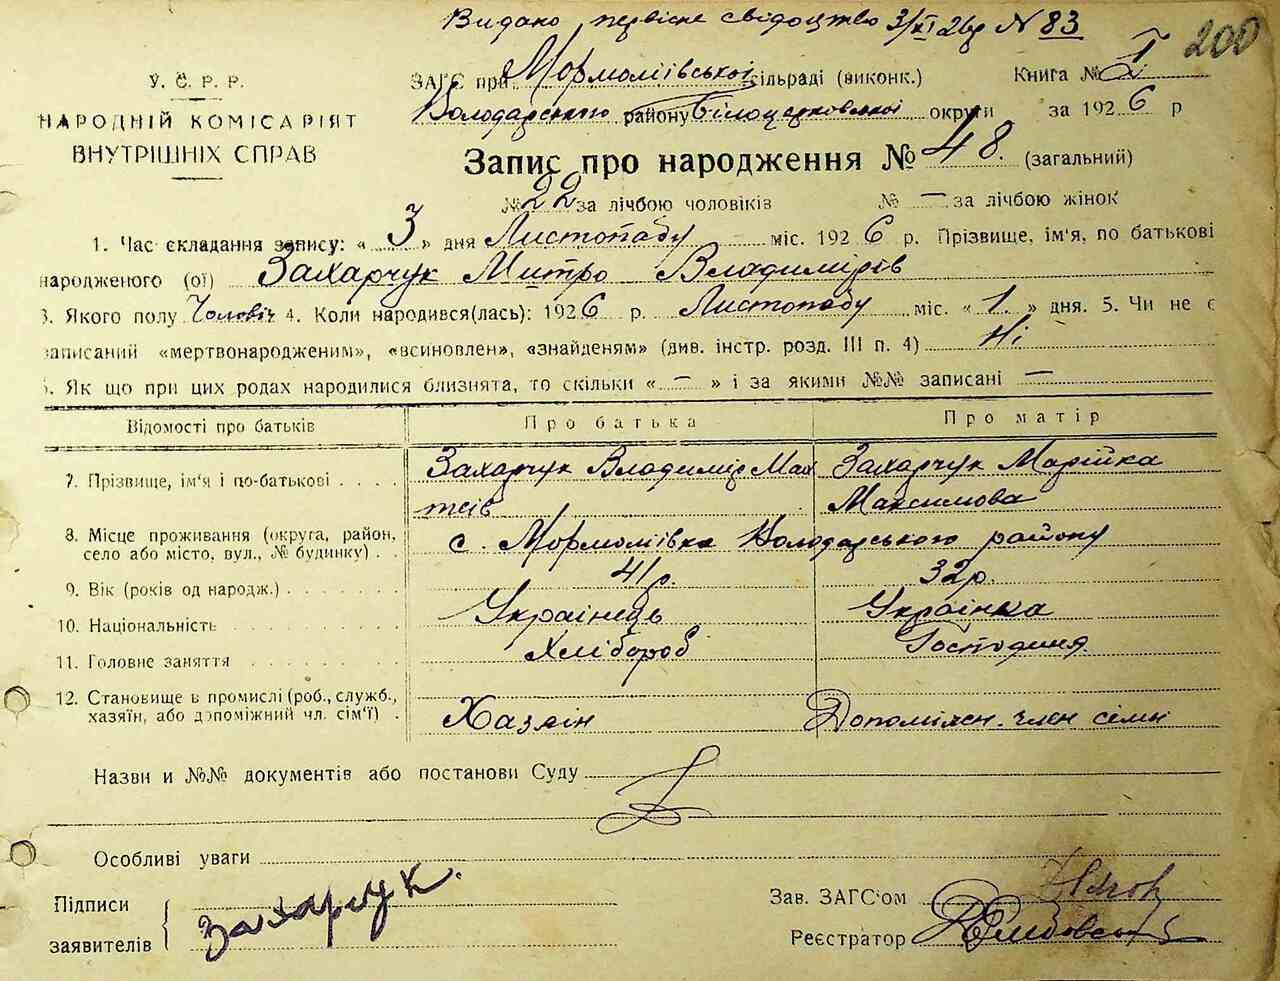 Видано первісне свідоцтво 3/XI 26р N 83
200
У.С.Р.Р.
НАРОДНІЙ КОМІСАРІЯТ
ВНУТРІШНІХ СПРАВ
ЗАГС при Мормоліївської сільраді (виконк.) Книга № I
Володарського району Білоцерківської округи за 1926 р
Запис про народження № 48. (загальний)
№ 22 за лічбою чоловіків № — за лічбою жінок
1. Час складання запису: « 3 » дня Листопаду міс. 1926 р. Прізвище, ім'я, по батькові
народженого (ої) Захарчук Митро Владимірів
3. Якого полу Чоловіч 4. Коли народився(лась): 1926 р. Листопаду міс. « 1. » дня. 5. Чи не є
записаний «мертвонародженим», «всиновлен», «знайденям» (див. інстр. розд. III п. 4) Ні
. Як що при цих родах народилися близнята, то скільки « — » і за якими №№ записані —
Відомості про батьків Про батька Про матір
7. Прізвище, ім'я і по-батькові Захарчук Владимір Мат Захарчук Марійка
теїв Максимова
8. Місце проживання (округа, район,
село або місто, вул., № будинку) с. Мормоліївка Володарського району
9. Вік (років од народж.) 41 р. 32 р.
10. Національність Українець Українка
11. Головне заняття Хлібороб Господиня
12. Становище в промислі (роб., служб.,
хазяїн, або допоміжний чл. сім'ї) Хазяїн Допоміжн. член сімї
Назви и №№ документів або постанови Суду
Особливі уваги
Підписи
заявителів Захарчук.
Зав. ЗАГС'ом
Реєстратор